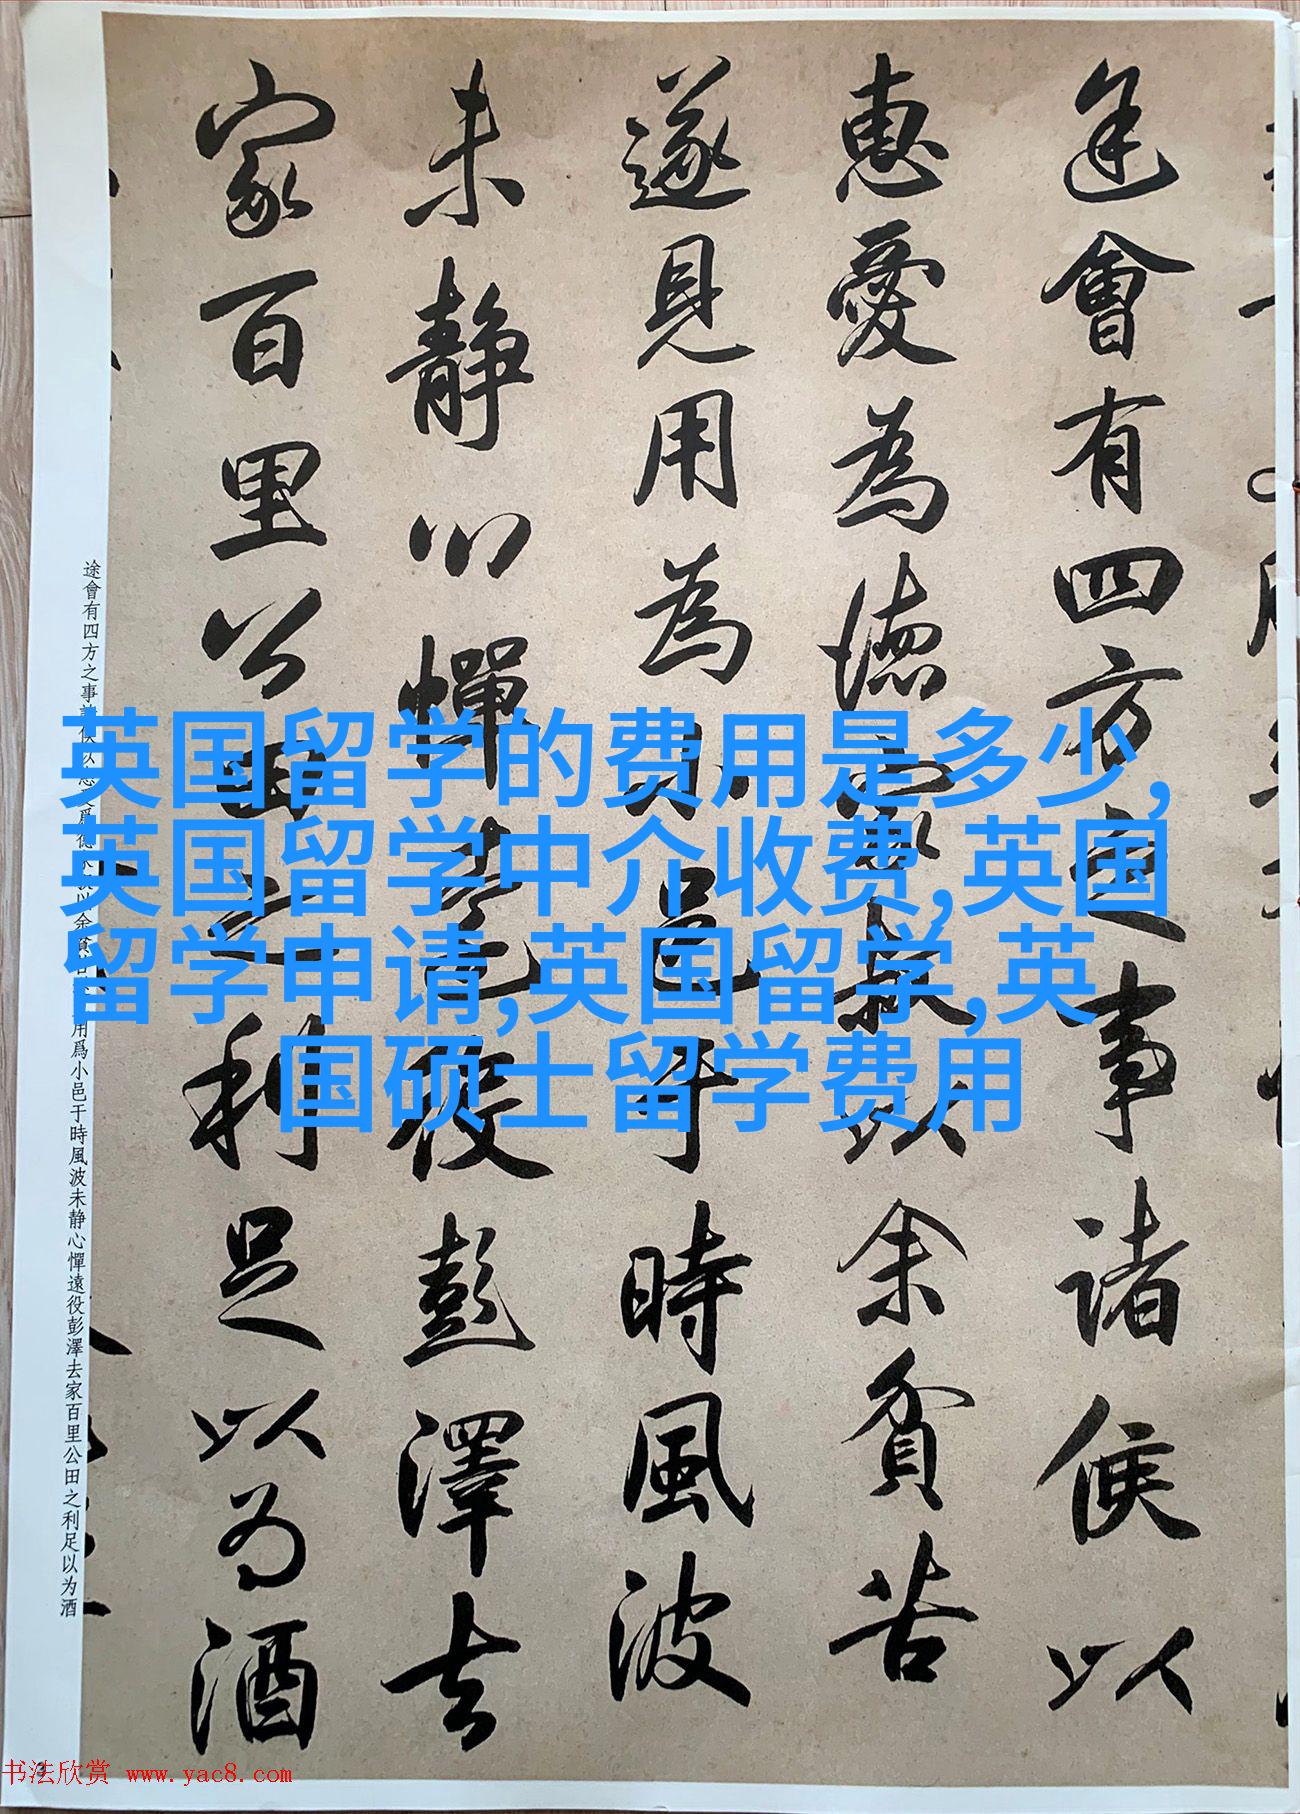 途會有四方之事諸侯以
惠愛為德家叔以余貧苦
遂見用為小邑于時風波
未静心憚遠役彭澤去
家百里公田之利足以為酒
英国留学的费用是多少,
英国留学中介收费,英国
留学申请,英国留学,英
国硕士留学费用
途會有四方之事
用爲小邑于時風波未静心憚遠役彭澤去家百里公田之利足以为酒
书法欣赏 www.yac8.com